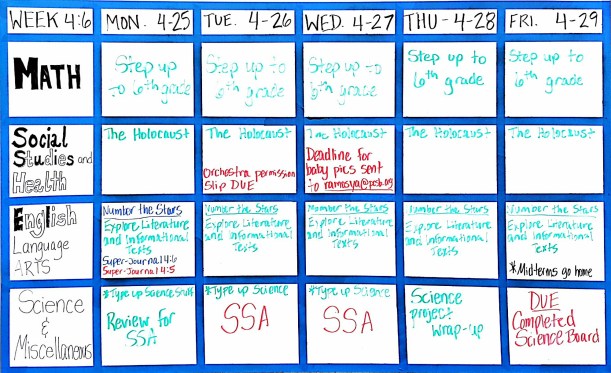 WEEK 4:6
MON. 4-25
TUE. 4-26
WED. 4-27
THU-4-28
FRI. 4-29
MATH
Step up
to 6th grade
Step up to
6th grade
Step up to
6th grade
Step up to
6th grade
Step up to
6th grade
Social
Studies and
Health
The Holocaust
The Holocaust
Orchestra permission
Slip DUE
The Holocaust
Deadline for
baby pics sent
to
The Holocaust
The Holocaust
English
Language
ARTS
Number the Stars
Explore Literature
and Informational
Texts
Super-Journal 4:6
Super-Journal 4:5
Number the Stars
Explore Literature
and Informational
Texts
Number the Stars
Explore Literature
and Informational
Texts
Number the Stars
Explore Literature
and Informational
Texts
Number the Stars
Explore Literature
and Informational
Texts
*Midterms go home
Science
&
Miscellaneous
*Type up Science Stuff
Review for
SSA
*Type up Science
SSA
*Type up Science
SSA
Science
project
wrap-up
DUE
Completed
Science Board